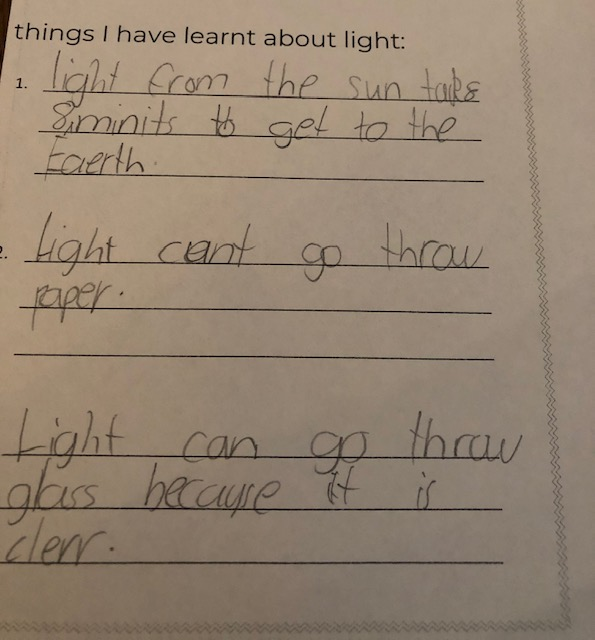 things I have learnt about light:
1. light from the sun taks
8 minits to get to the
Eaerth.
2. Light cant go throw
paper.
Light can go throw
glass because it is
clerr.